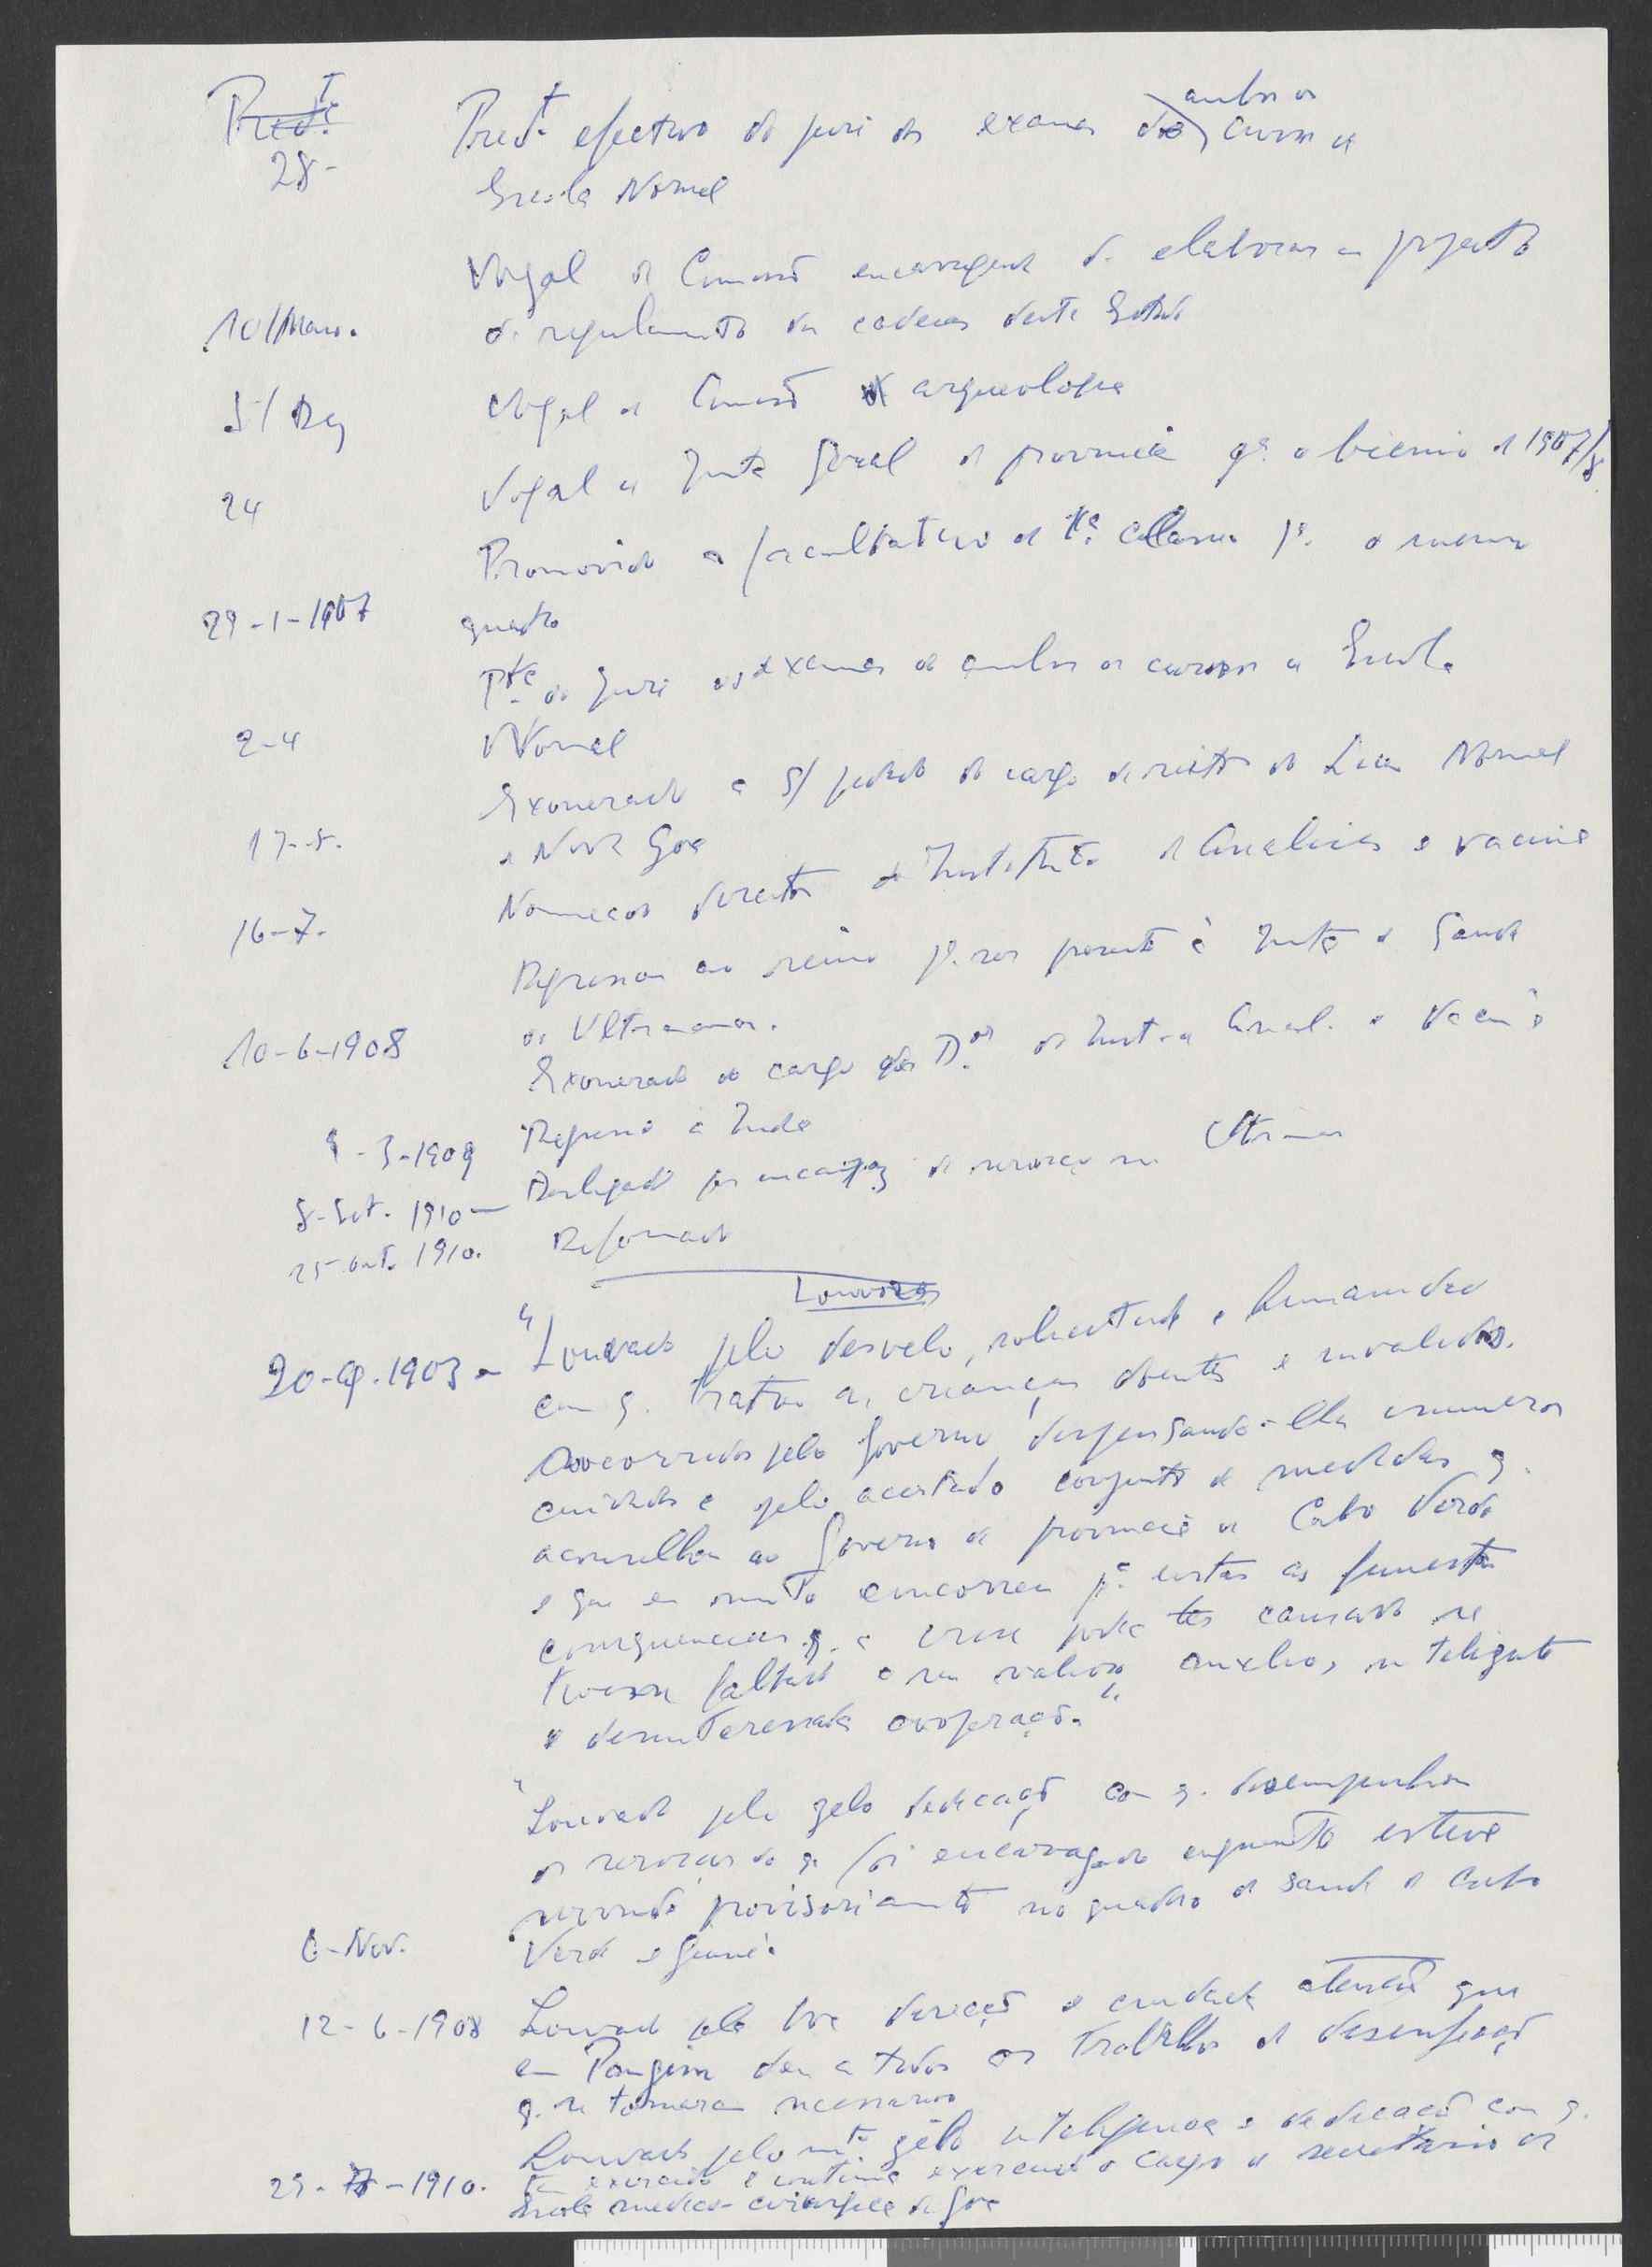 Predte
28- Predte efectivo do juri dos exames dos ambos os cursos da
Escola Normal
Vogal da Comissão encarregada de elaborar um projecto
10/Março. de regulamento das cadeias deste Estado
5/Dez Vogal da Comissão de arqueologia
24 Vogal da Junta Geral da provincia pª o bienio de 1907/8.
Promovido a facultativo de 1ª classe pª o mesmo
29-1-1907 quadro
Pte do Juri dos exames de ambos os cursos da Escola
2-4 Normal
Exonerado a s/ pedido do cargo de reitor do Liceu Nacional
17-5. de Nova Goa
16-7. Nomeado director do Instituto de Analises e vacina
Regressou ao reino pª ser presente à Junta de Saude
10-6-1908 do Ultramar.
Exonerado do cargo de Dor do Inst. de Anal. e Vacina
9-3-1909 Regressa à India
8-Set. 1910- Desligado por incapaz de serviço no Ultramar
25 Out. 1910. Reformado
Louvores
20-9.1903- "Louvado pelo desvelo, solicitude e humanidade
com q. tratou as crianças doentes e invalidas.
soccorridas pelo Governo, dispensando-lhes inumeros
cuidados e pelo acertado conjunto de medidas q.
aconselhou ao Governo da provincia de Cabo Verde
e que em muito concorreu pª evitar as funestas
consequencias q. a crise podia ter causado se
tivesse faltado o seu valioso auxilio, inteligente
e desinteressada cooperação"
"Louvado pelo zelo dedicação com q. desempenhou
os serviços de q. foi encarregado enquanto esteve
servindo provisoriamente no quadro de saude de Cabo
6-Nov. Verde e Guiné.
12-6-1908 Louvado pela boa direcção e cuidada atenção que
em Pangim deu a todos os trabalhos de desinfecção
q. se tornaram necessarios
Louvado pelo mto zêlo inteligencia e dedicação com q.
29-7-1910. tem exercido e continua exercendo o cargo de secretario da
Escola medico-cirurgica de Goa